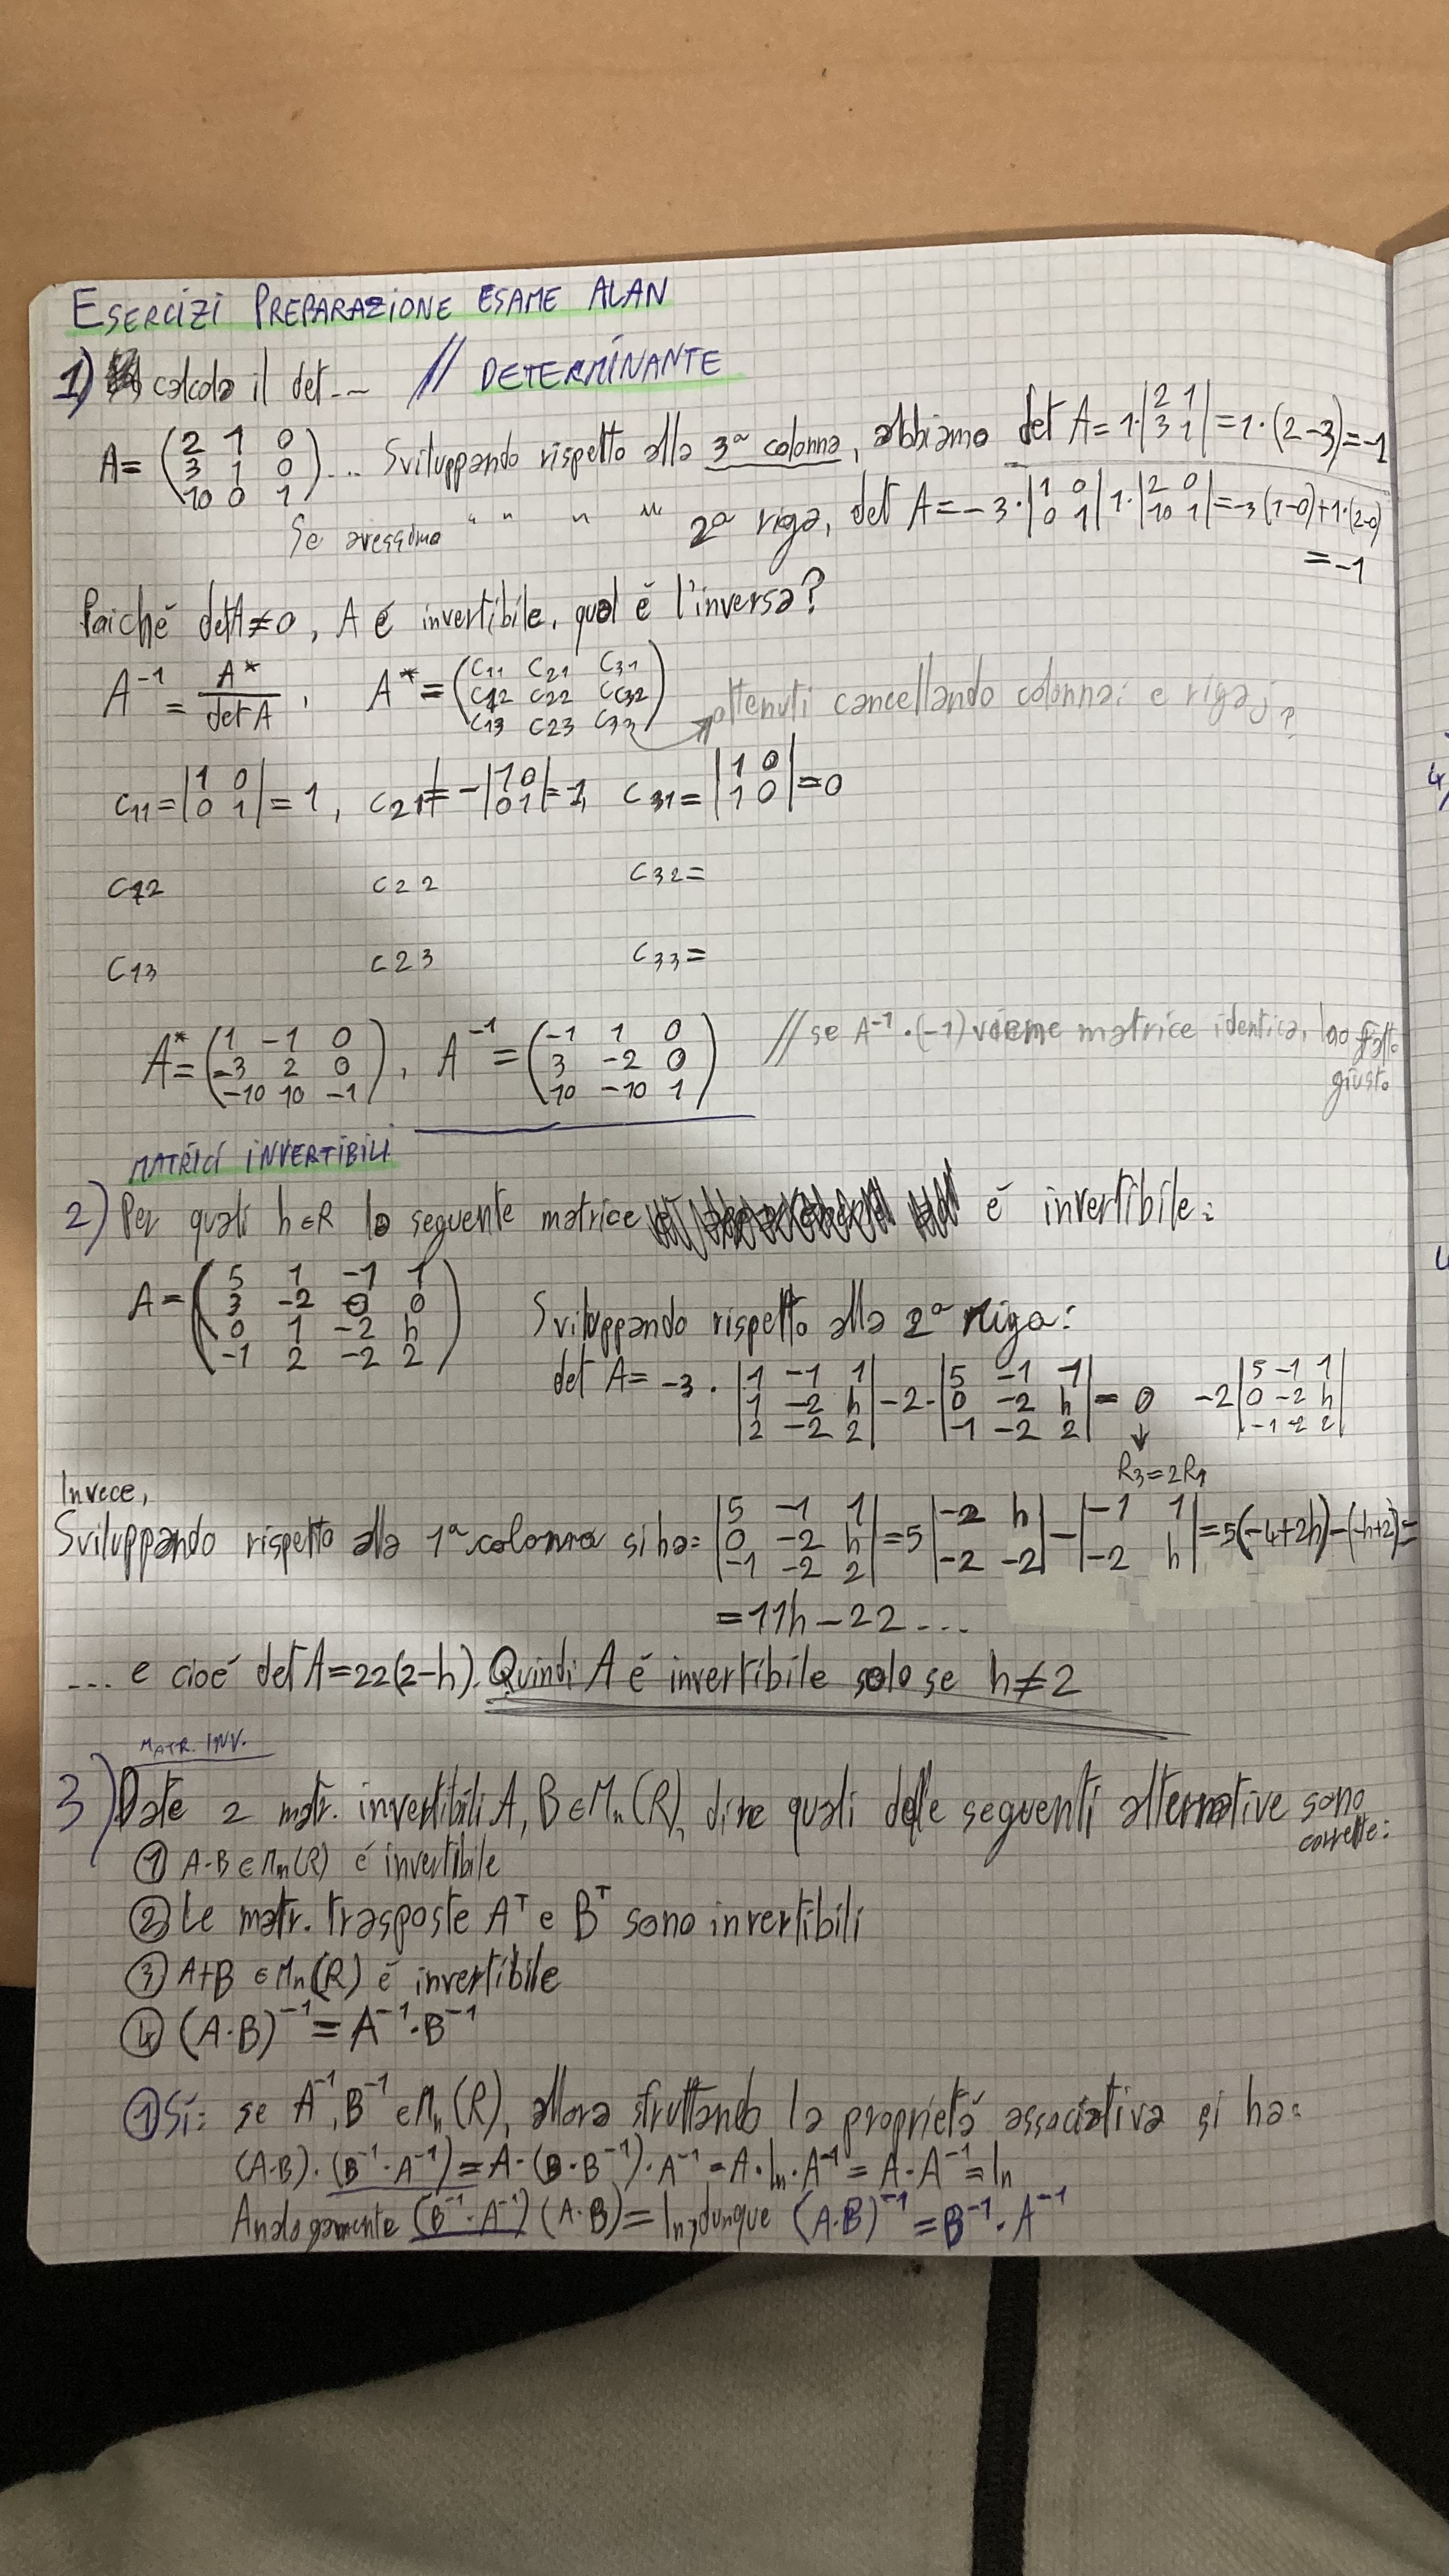 ESERCIZI PREPARAZIONE ESAME ALAN
1) calcola il det... // DETERMINANTE
A= (2 1 0 / 3 1 0 / 10 0 1) ... Sviluppando rispetto alla 3ª colonna, abbiamo det A = 1·|2 1 / 3 1| = 1·(2-3) = -1
Se avessimo " " " " 2ª riga, det A = -3·|1 0 / 0 1| 1·|2 0 / 10 1| = -3(1-0)+1·(2-0)
= -1
Poiché detA≠0, A é invertibile, qual é l'inversa?
A⁻¹ = A*/det A, A* = (C11 C21 C31 / C12 C22 C32 / C13 C23 C33) ottenuti cancellando colonna i e riga j?
C11 = |1 0 / 0 1| = 1, C21 = -|1 0 / 0 1| = -1, C31 = |1 0 / 1 0| = 0
C12 C22 C32=
C13 C23 C33=
A* = (1 -1 0 / -3 2 0 / -10 10 -1), A⁻¹ = (-1 1 0 / 3 -2 0 / 10 -10 1) // se A⁻¹·(-1) viene matrice identica, l'ho fatto
giusto
MATRICI INVERTIBILI
2) Per quali h∈R la seguente matrice é invertibile:
A = (5 1 -1 1 / 3 -2 0 0 / 0 1 -2 h / -1 2 -2 2) Sviluppando rispetto alla 2ª riga:
det A = -3·|1 -1 1 / 1 -2 h / 2 -2 2| -2·|5 -1 1 / 0 -2 h / -1 -2 2| = 0 -2|5 -1 1 / 0 -2 h / -1 -2 2|
↓
R3=2R1
Invece,
Sviluppando rispetto alla 1ª colonna si ha: |5 -1 1 / 0 -2 h / -1 -2 2| = 5|-2 h / -2 -2| - |-1 1 / -2 h| = 5(-4+2h)-(-h+2)=
= 11h-22...
... e cioé det A = 22(2-h). Quindi A é invertibile solo se h≠2
MATR. INV.
3) Date 2 matr. invertibili A, B∈Mn(R), dire quali delle seguenti alternative sono
corrette:
① A·B∈Mn(R) é invertibile
② Le matr. trasposte Aᵀ e Bᵀ sono invertibili
③ A+B ∈Mn(R) é invertibile
④ (A·B)⁻¹ = A⁻¹·B⁻¹
① Sí: se A⁻¹, B⁻¹ ∈Mn(R), allora sfruttando la proprietá associativa si ha:
(A·B)·(B⁻¹·A⁻¹) = A·(B·B⁻¹)·A⁻¹ = A·In·A⁻¹ = A·A⁻¹ = In
Analogamente (B⁻¹·A⁻¹)(A·B) = In, dunque (A·B)⁻¹ = B⁻¹·A⁻¹